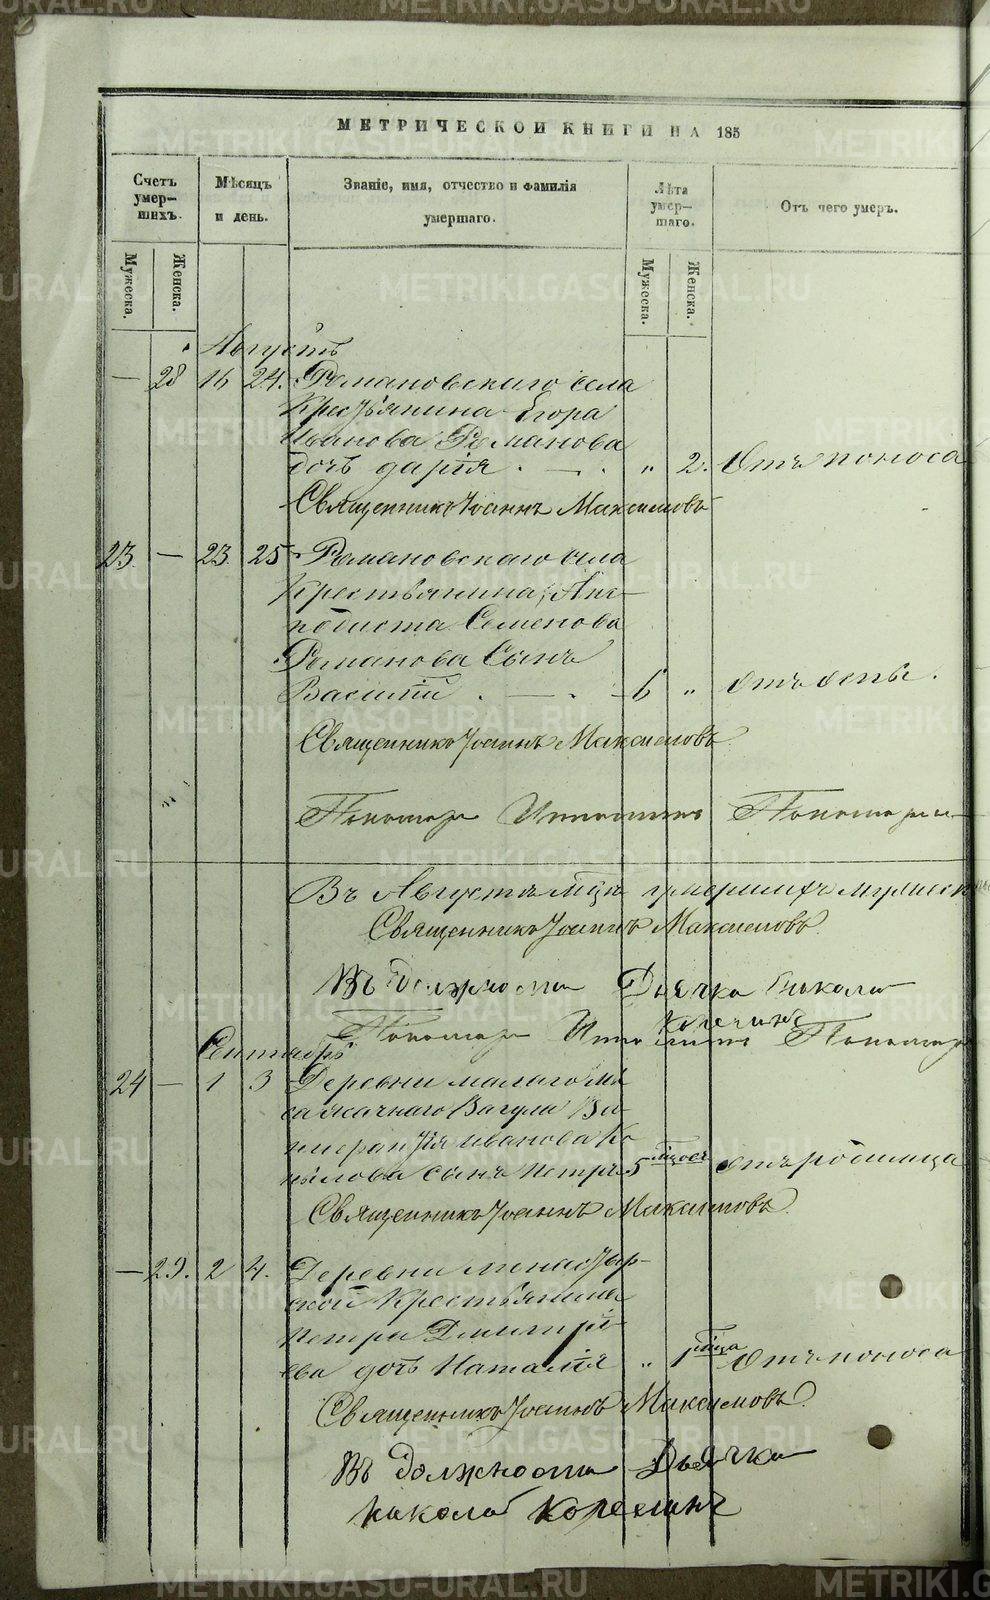 МЕТРИЧЕСКОЙ КНИГИ НА 185
Счетъ умер-шихъ.
Мѣсяцъ и день.
Званіе, имя, отчество и фамилія умершаго.
Лѣта умер-шаго.
Отъ чего умеръ.
Мужеска. Женска.
Мужеска. Женска.
Августъ
— 28 16 24. Романовскаго села
Крестьянина Егора
Иванова Романова
дочь дарія . — . „ 2. Отъ поноса
Священникъ Іоаннъ Максимовъ
23. — 23. 25. Романовскаго села
Крестьянина, Ан-
Семенова
Романова Сынъ
Василій . — . — 6 „ отъ оспы.
Священникъ Іоаннъ Максимовъ
Пономарь Пономаревъ
Въ Августѣ мцѣ умершихъ
Священникъ Іоаннъ Максимовъ
Въ должности Дьячка Никола
Пономарь
Сентябрь
24 — 1 3 Деревни малаго
ясачнаго Вагула
Иванова
сынъ петръ 5 мцовъ отъ родимца
Священникъ Іоаннъ Максимовъ
— 29. 2 4. Деревни монастыр-
ской Крестьянина
Петра Дмитрі-
ева дочь Наталія „ 1 мца Отъ поноса
Священникъ Іоаннъ Максимовъ.
Въ должности Дьячка
Николай Корелинъ
METRIKI.GASO-URAL.RU